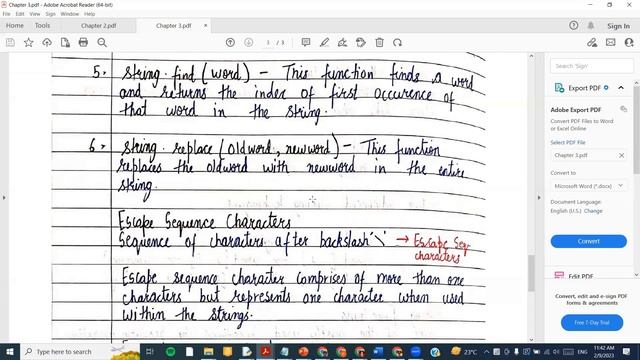 Chapter 3.pdf - Adobe Acrobat Reader (64-bit)
File Edit View Sign Window Help
Home Tools Chapter 2.pdf Chapter 3.pdf × Sign In
3 / 3
5. string.find(word) – This function finds a word
and returns the index of first occurence of
that word in the string.
6. string.replace(oldword, newword) – This function
replaces the oldword with newword in the entire
string.
Escape Sequence Characters
Sequence of characters after backslash '\' → Escape Seq.
characters
Escape sequence character comprises of more than one
characters but represents one character when used
within the strings.
Search 'Sign'
Export PDF
Adobe Export PDF
Convert PDF Files to Word
or Excel Online
Select PDF File
Chapter 3.pdf ×
Convert to
Microsoft Word (*.docx)
Document Language:
English (U.S.) Change
Convert
Edit PDF
Convert, edit and e-sign PDF
forms & agreements
Free 7-Day Trial
Type here to search
23°C
11:42 AM
2/9/2023